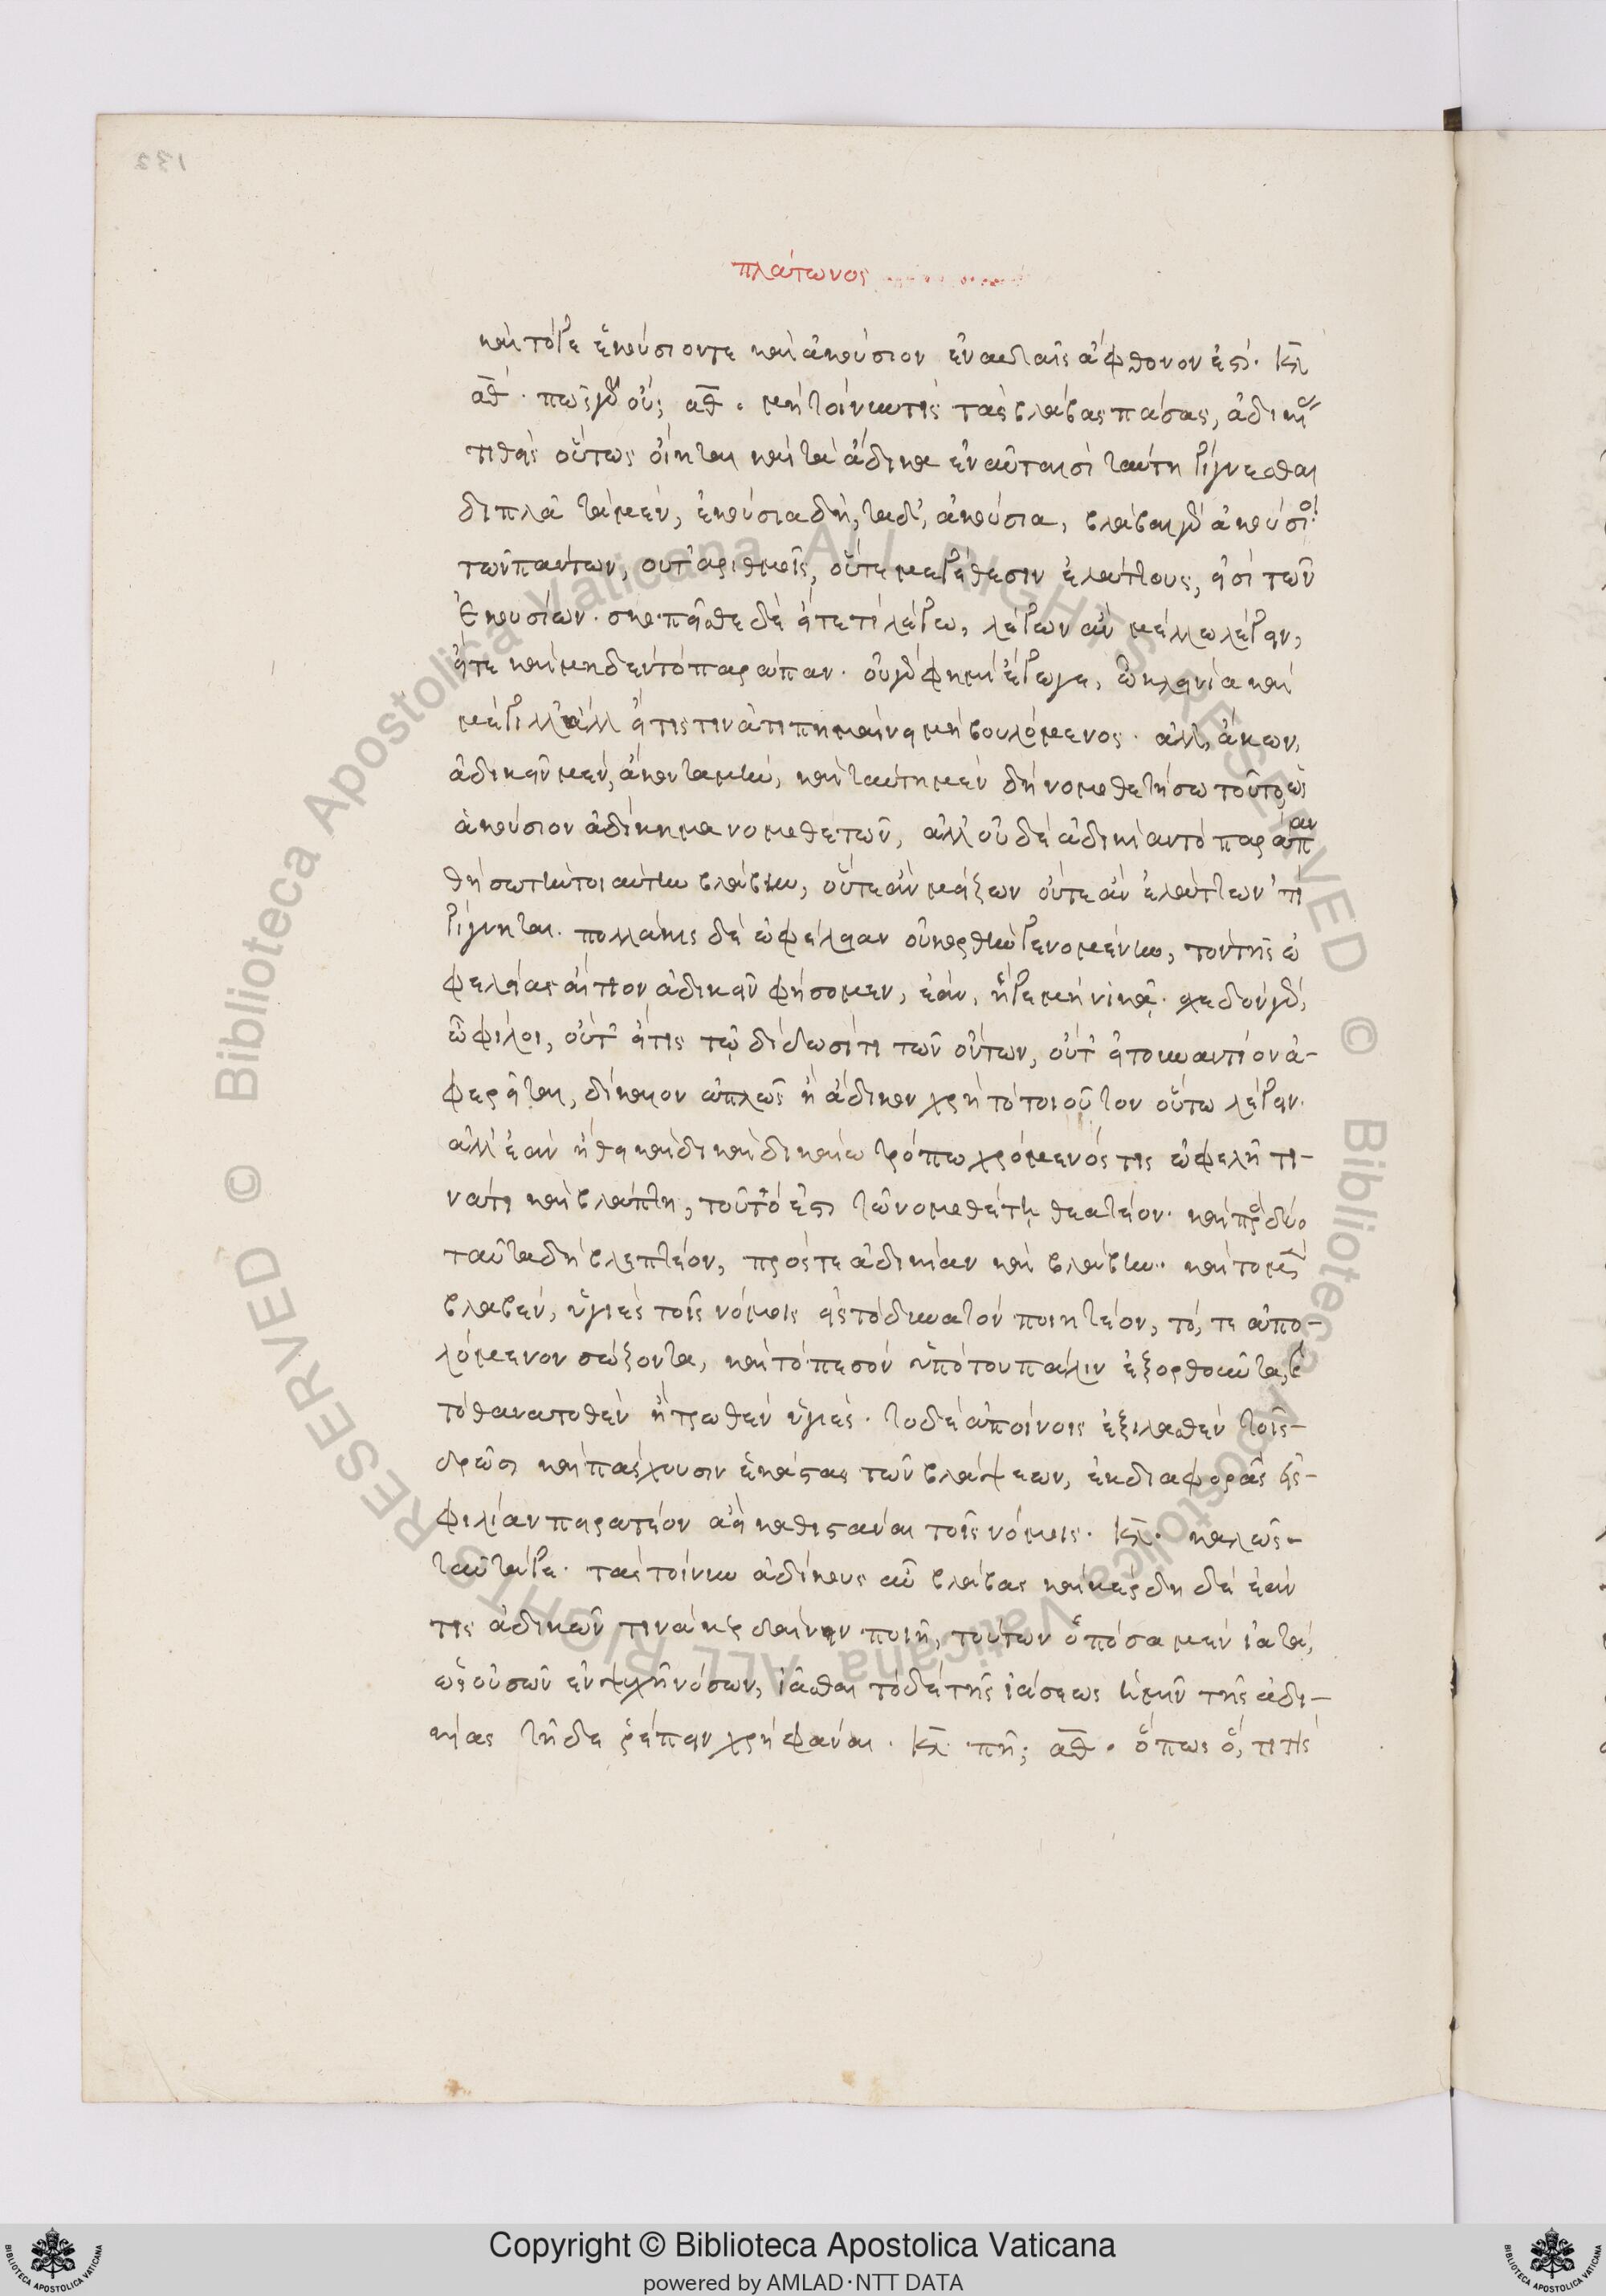 132
πλάτωνος
καὶ τόγε ἑκούσιον τε καὶ ἀκούσιον ἐν αὐταῖς ἄφθονον ἐστί. κλ
αθ. πῶς γὰρ οὔ; αθ. μὴ τοίνυν τις τὰς βλάβας πάσας, ἀδικίας
τιθεὶς οὕτως οἴηται καὶ τὰ ἄδικα ἐν αὐταῖσι ταύτη γίγνεσθαι
διπλᾶ τὰ μὲν, ἑκούσια δὴ, τὰ δ', ἀκούσια, βλάβαι γὰρ ἀκούσιοι
τῶν πάντων, οὔτ' ἀριθμοῖς, οὔτε μεγέθεσιν ἐλάττους, εἰσὶ τῶν
ἑκουσίων. σκοπεῖσθε δὲ εἴτε τι λέγω, λέγων ἃ μέλλω λέγειν,
εἴτε καὶ μηδὲν τὸ παράπαν. οὐ γὰρ φημὶ ἔγωγε, ὦ κλεινία καὶ
μέγιλλ' ἀλλ εἴ τις τινά τι πημαίνει μὴ βουλόμενος. ἀλλ, ἄκων,
ἀδικεῖν μὲν, ἄκοντα μὴν, καὶ ταύτη μὲν δὴ νομοθετήσω τοῦτο, ὡς
ἀκούσιον ἀδίκημα νομοθετῶν, ἀλλ' οὐδὲ ἀδικίαν τὸ παράπαν
θήσω τὴν τοιαύτην βλάβην, οὔτε ἂν μείζων οὔτε ἂν ἐλάττων τῳ
γίγνηται. πολλάκις δὲ ὠφέλειαν οὐκ ὀρθὴν γενομένην, τὸν τῆς ὠ
φελείας αἴτιον ἀδικεῖν φήσομεν, ἐὰν, ἥ γε ἐμὴ νικᾷ. σχεδὸν γὰρ,
ὦ φίλοι, οὔτ' εἴ τις τῷ δίδωσί τι τῶν ὄντων, οὔτ' εἰ τοὐναντίον ἀ-
φερεῖται, δίκαιον ἁπλῶς ἢ ἄδικον χρὴ τὸ τοιοῦτον οὕτω λέγειν.
ἀλλ' ἐὰν ἤθει καὶ δι καὶ δικαίω τρόπω χρόμενός τις ὠφελῆ τι-
νά τι καὶ βλάπτη, τοῦτό ἐστι τῶ νομοθέτῃ θεατέον. καὶ πρὸς δύο
ταῦτα δὴ βλεπτέον, πρός τε ἀδικίαν καὶ βλάβην. καὶ τὸ μὲν
βλαβὲν, ὑγιὲς τοῖς νόμοις εἰς τὸ δυνατὸν ποιητέον, τό, τε ἀπο-
λόμενον σώζοντα, καὶ τὸ πεσὸν ὑπό του πάλιν ἐξορθοῦντα, καὶ
τὸ θανατωθὲν ἢ τρωθὲν ὑγιές. τὸ δὲ ἀποίνοις ἐξιλασθὲν τοῖς-
δρῶσι καὶ πάσχουσιν ἑκάστας τῶν βλάψεων, ἐκ διαφορᾶς εἰς-
φιλίαν πειρατέον ἀεὶ καθιστάναι τοῖς νόμοις. κλ. καλῶς-
ταῦτά γε. τὰς τοίνυν ἀδίκους αὖ βλάβας καὶ κέρδη δὲ ἐάν
τις ἀδικῶν τινὰ κερδαίνειν ποιῆ, τούτων ὁπόσα μὲν ἰατὰ,
ὡς οὐσῶν ἐν ψυχῆ νόσων, ἰᾶσθαι τὸ δὲ τῆς ἰάσεως ἡμῖν τῆς ἀδι-
κίας τῆδε ῥέπειν χρὴ φάναι. κλ. πῆ; αθ. ὅπως ὅ, τι τις